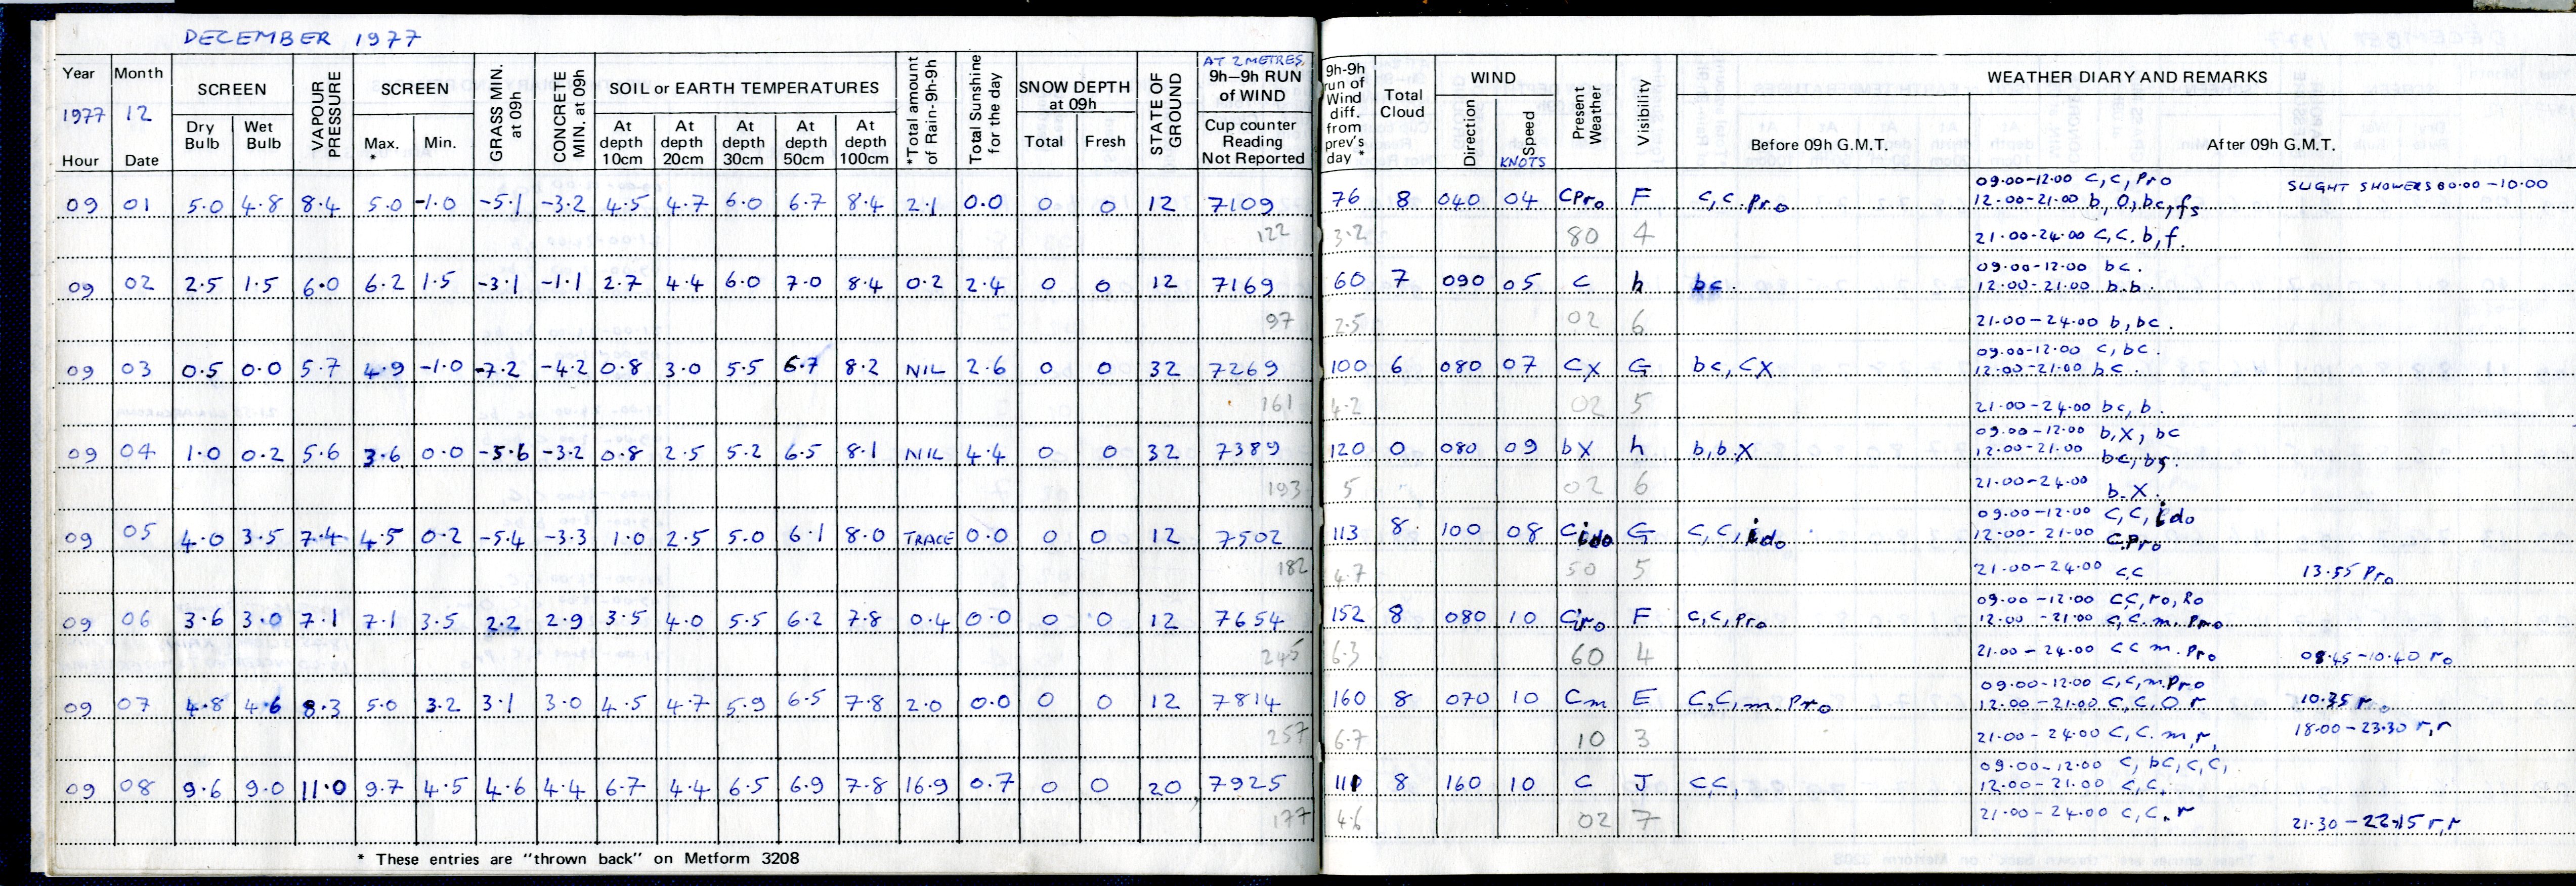 DECEMBER 1977
Year Month SCREEN VAPOUR PRESSURE SCREEN GRASS MIN. at 09h CONCRETE MIN. at 09h SOIL or EARTH TEMPERATURES *Total amount of Rain-9h-9h Total Sunshine for the day SNOW DEPTH at 09h STATE OF GROUND AT 2 METRES 9h–9h RUN of WIND 9h-9h run of Wind diff. from prev's day * Total Cloud WIND Present Weather Visibility WEATHER DIARY AND REMARKS
1977 12
Hour Date Dry Bulb Wet Bulb Max. * Min. At depth 10cm At depth 20cm At depth 30cm At depth 50cm At depth 100cm Total Fresh Cup counter Reading Not Reported Direction Speed KNOTS Before 09h G.M.T. After 09h G.M.T.
09.00-12.00 C, C, Pro SLIGHT SHOWERS 00.00-10.00
09 01 5.0 4.8 8.4 5.0 -1.0 -5.1 -3.2 4.5 4.7 6.0 6.7 8.4 2.1 0.0 0 0 12 7109 76 8 040 04 CPro F C,C.Pro 12.00-21.00 b, O, bc, fs
122 3.2 80 4 21.00-24.00 C, C. b, f.
09.00-12.00 bc.
09 02 2.5 1.5 6.0 6.2 1.5 -3.1 -1.1 2.7 4.4 6.0 7.0 8.4 0.2 2.4 0 0 12 7169 60 7 090 05 C h bc. 12.00-21.00 b.b.
97 2.5 02 6 21.00-24.00 b, bc.
09.00-12.00 C, bc.
09 03 0.5 0.0 5.7 4.9 -1.0 -7.2 -4.2 0.8 3.0 5.5 6.7 8.2 NIL 2.6 0 0 32 7269 100 6 080 07 CX G bc, CX 12.00-21.00 bc.
161 4.2 02 5 21.00-24.00 bc, b.
09.00-12.00 b,X, bc
09 04 1.0 0.2 5.6 3.6 0.0 -5.6 -3.2 0.8 2.5 5.2 6.5 8.1 NIL 4.4 0 0 32 7389 120 0 080 09 bX h b,b.X 12.00-21.00 bc, bs.
193 5 02 6 21.00-24.00 b.X.
09.00-12.00 C, C, ido
09 05 4.0 3.5 7.4 4.5 0.2 -5.4 -3.3 1.0 2.5 5.0 6.1 8.0 TRACE 0.0 0 0 12 7502 113 8 100 08 Cido G C,C,ido 12.00-21.00 C.Pro
182 4.7 50 5 21.00-24.00 CC 13.55 Pro
09.00-12.00 CC, ro, Ro
09 06 3.6 3.0 7.1 7.1 3.5 2.2 2.9 3.5 4.0 5.5 6.2 7.8 0.4 0.0 0 0 12 7654 152 8 080 10 Ciro F C,C,Pro 12.00-21.00 C, C. m. Pro
245 6.3 60 4 21.00-24.00 CC m. Pro 08.45-10.40 ro
09.00-12.00 C, C, m. Pro
09 07 4.8 4.6 8.3 5.0 3.2 3.1 3.0 4.5 4.7 5.9 6.5 7.8 2.0 0.0 0 0 12 7814 160 8 070 10 Cm E C,C,m.Pro 12.00-21.00 C, C, O r 10.35 ro
257 6.7 10 3 21.00-24.00 C, C. m, r, 18.00-23.30 r,r
09.00-12.00 C, bC, C, C,
09 08 9.6 9.0 11.0 9.7 4.5 4.6 4.4 6.7 4.4 6.5 6.9 7.8 16.9 0.7 0 0 20 7925 111 8 160 10 C J CC, 12.00-21.00 C, C.
177 4.6 02 7 21.00-24.00 C, C. r 21.30-22.15 r,r
* These entries are "thrown back" on Metform 3208